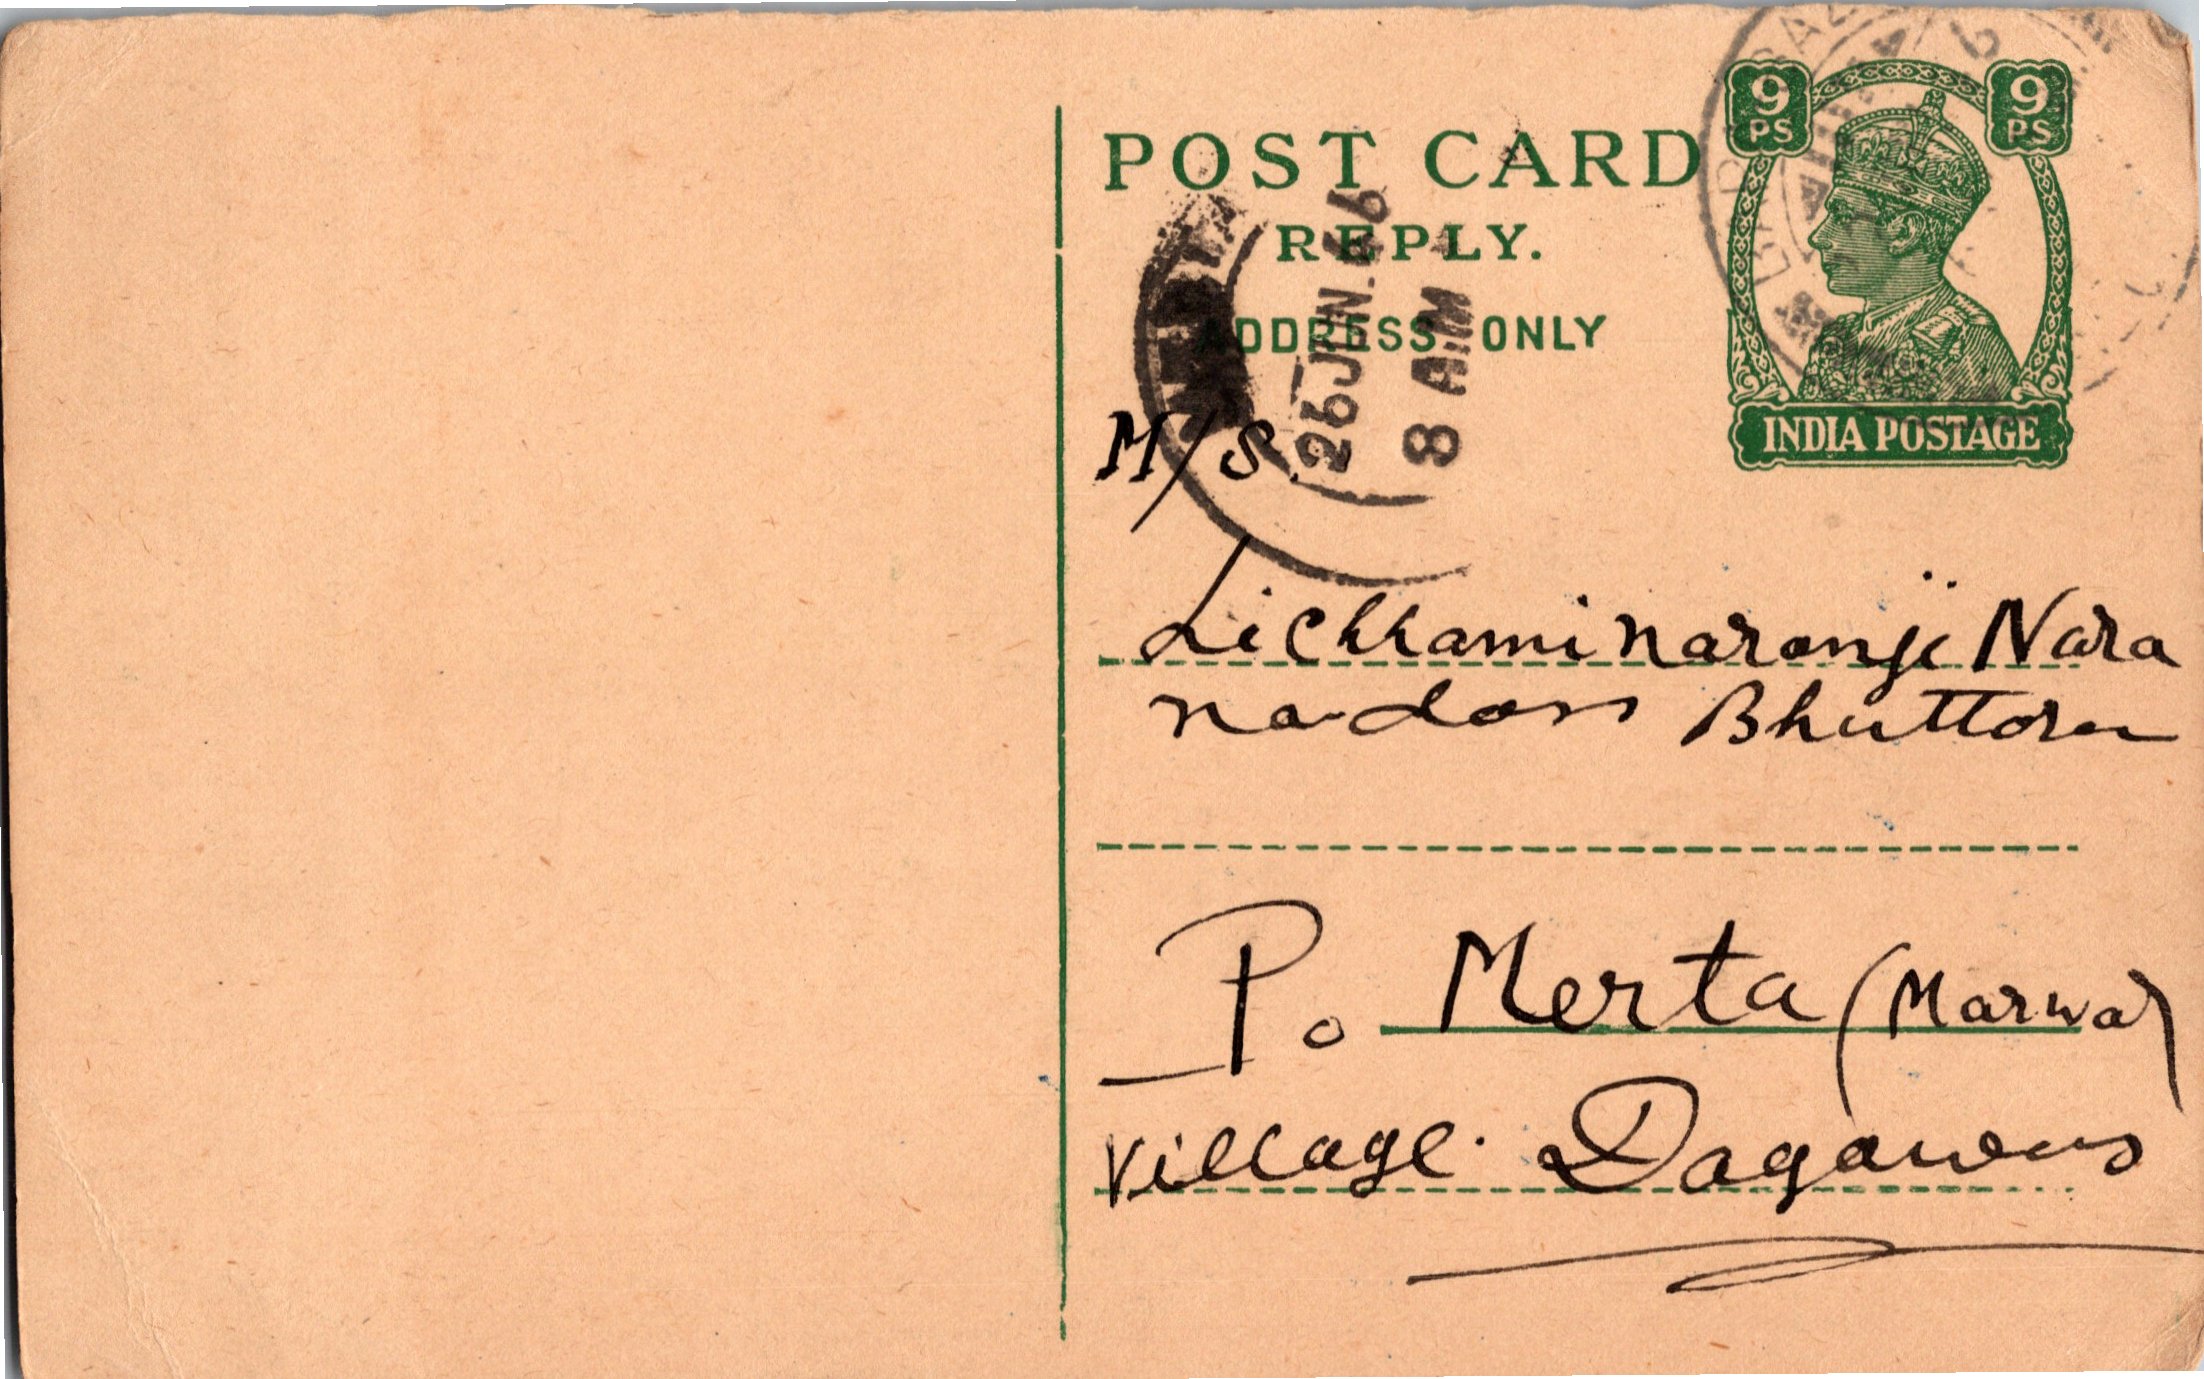 POST CARD
REPLY.
ADDRESS ONLY
9 PS 9 PS
INDIA POSTAGE
25 JUN. 46
8 AM
M/S.
Lichhaminaranji Nara
nadass Bhuttora
Po Merta (Marwar)
Village. Dagawas